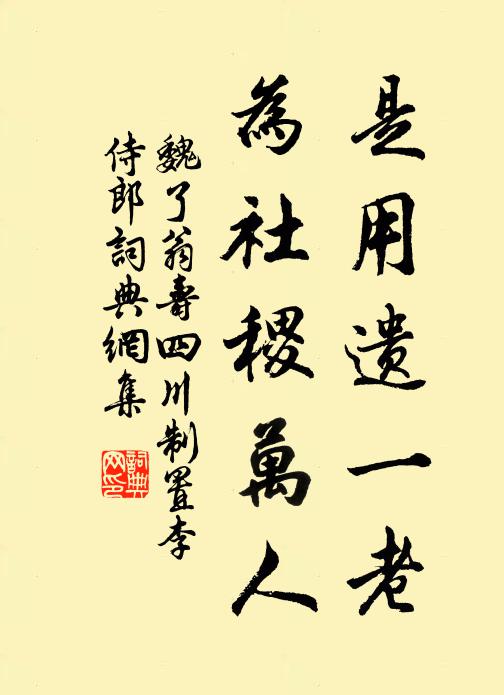 是用遺一老
為社稷萬人
魏了翁壽四川制置李
侍郎詞典網集
詞典
网印